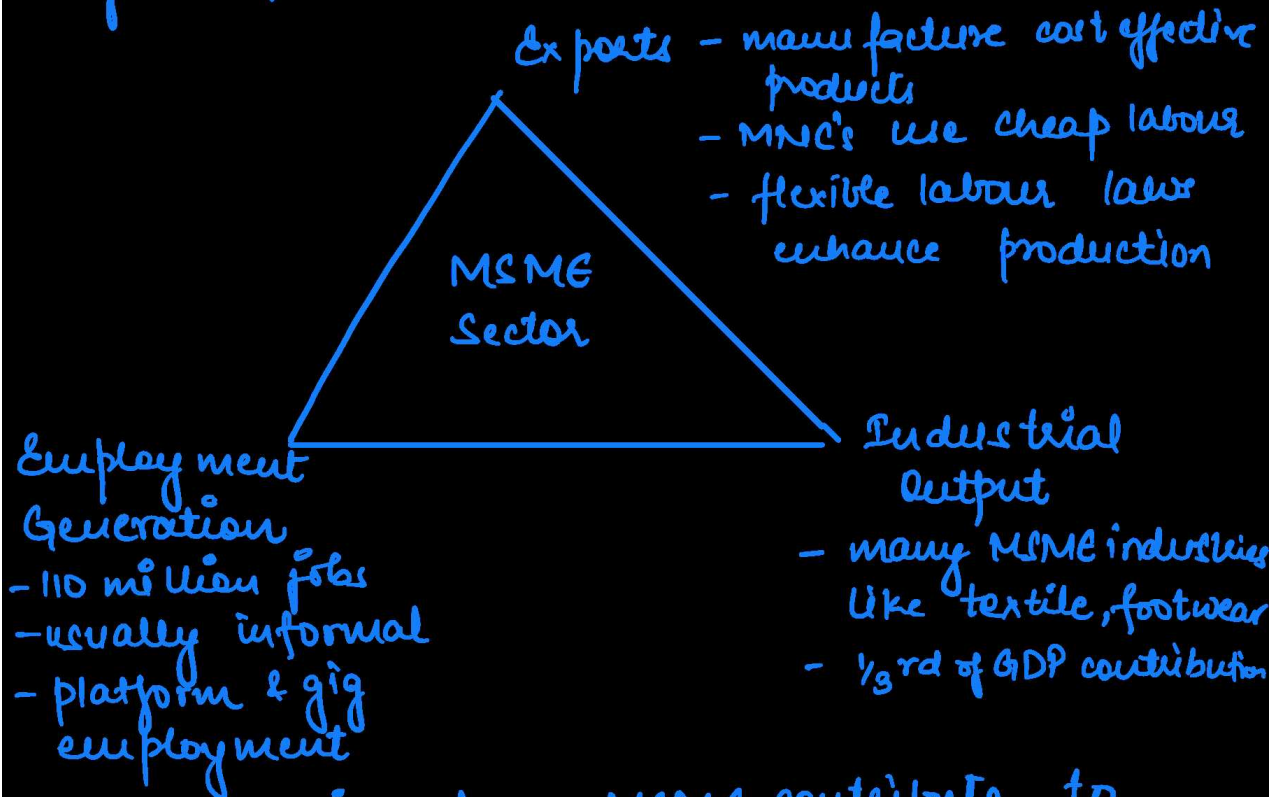 Exports - manufacture cost effective
products
- MNC's use cheap labour
- flexible labour laws
enhance production
MSME
Sector
Employment
Generation
- 110 million jobs
- usually informal
- platform & gig
employment
Industrial
Output
- many MSME industries
like textile, footwear
- 1/3rd of GDP contribution
MSME contribute to